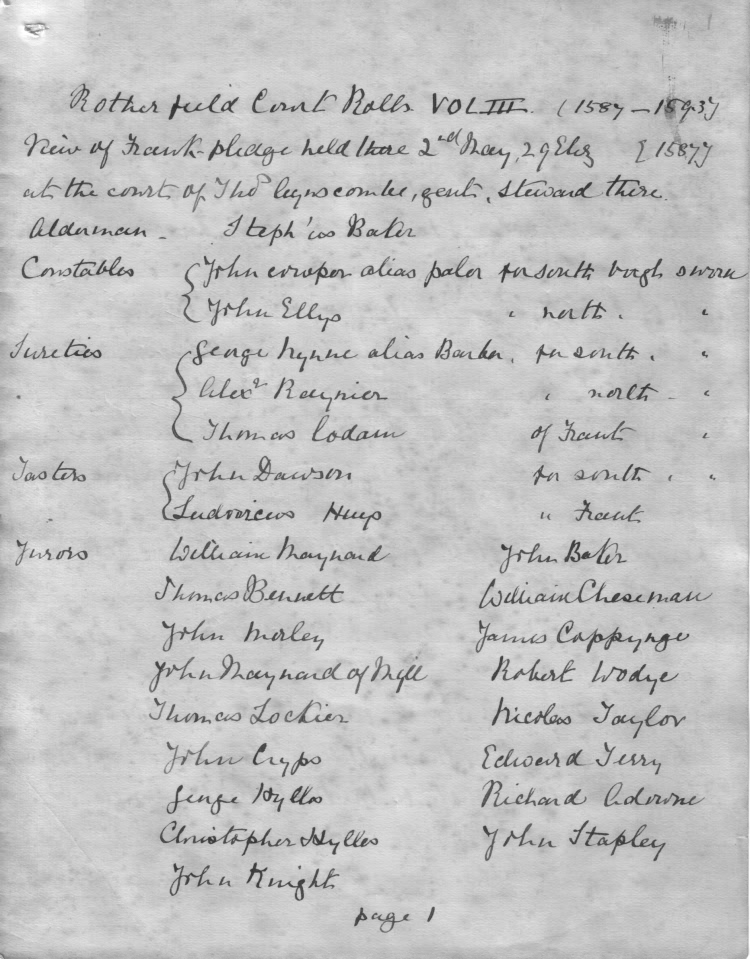 Rotherfield Court Rolls VOL III. (1587-1593)
View of Frank-pledge held there 2nd May, 29 Eliz [1587]
at the court of Thos Cynscombe, gent, steward there.
Alderman - Steph'us Baker
Constables { John cowper alias paler for south borgh sworn
{ John Ellys " north . "
Sureties { George Kynne alias Barker, for south . "
Alexr Raynier " north - "
Thomas Codam of Frant "
Tasters { John Dawson for south . "
{ Ludovicus " Frant
Jurors William Maynard John Baker
Thomas Bennett William Cheseman
John Morley James Coppynge
John Maynard of Myll Robert Wodye
Thomas Lockier Nicolas Taylor
John Cryps Edward Terry
George Hylles Richard Adowne
Christopher Hylles John Stapley
John Knight
page 1